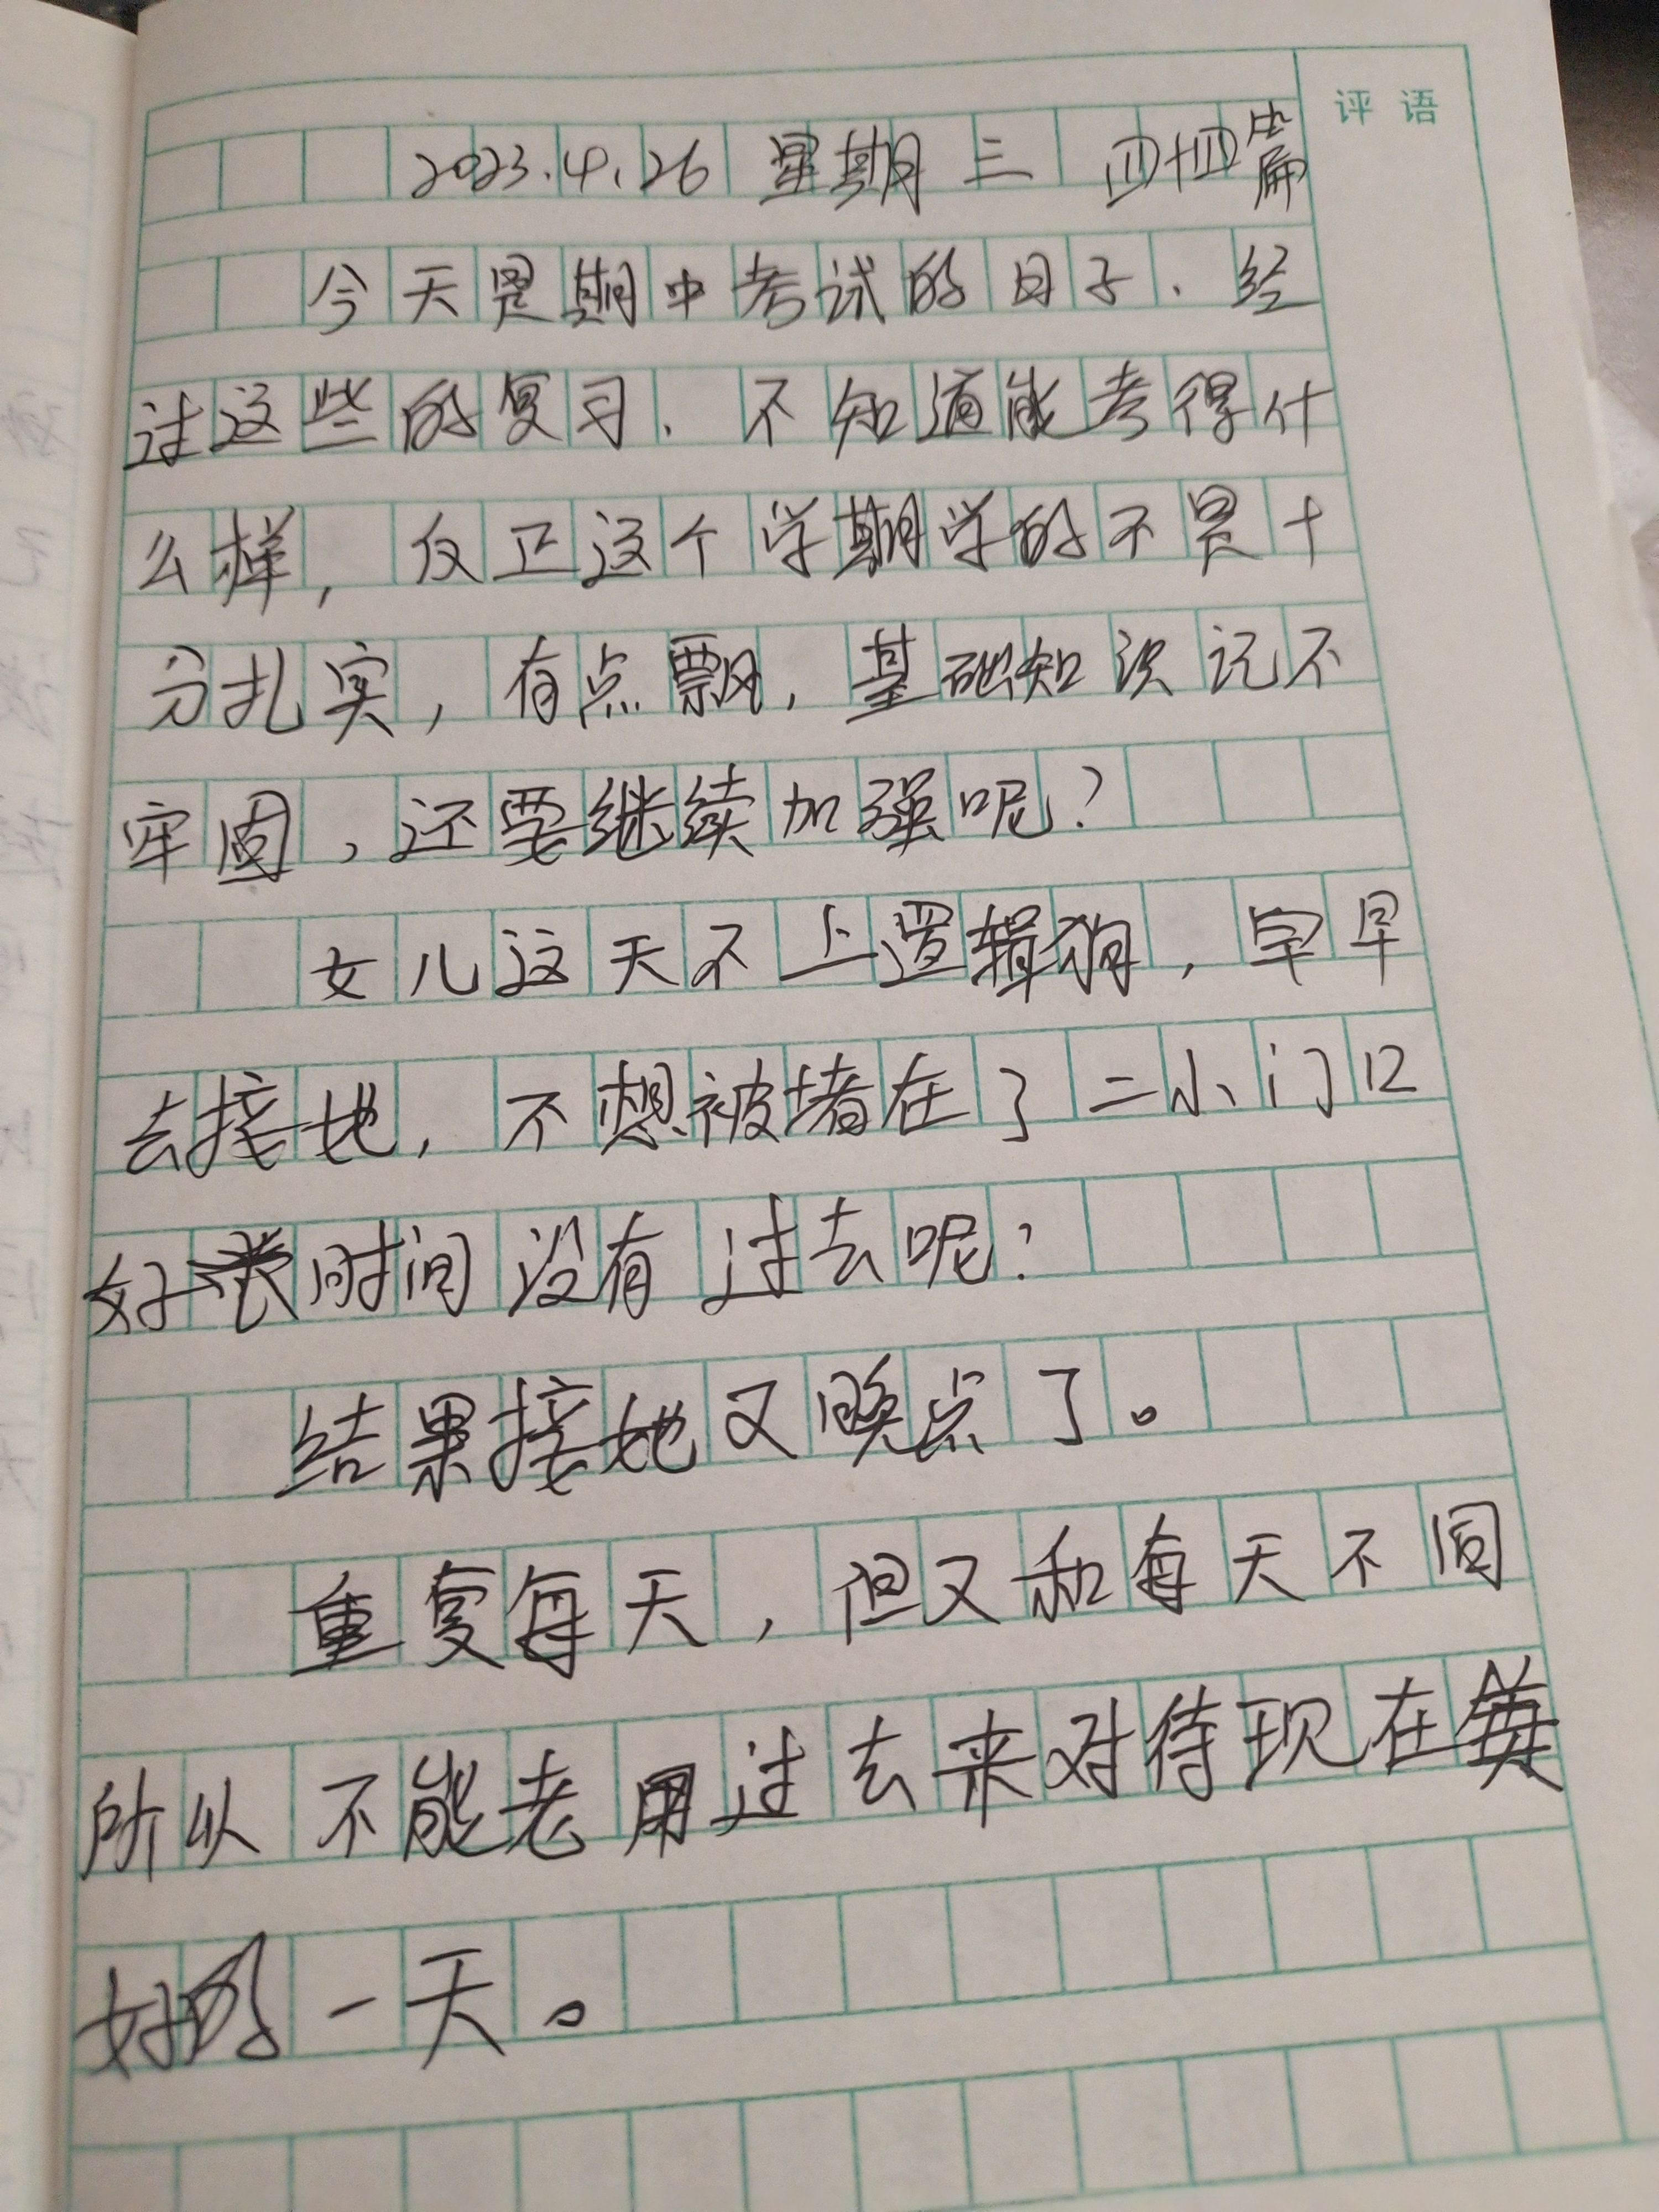 评语
2023.4.26 星期三 四十四篇
今天是期中考试的日子、经
过这些的复习、不知道能考得什
么样，仅正这个学期学的不是十
分扎实，有点飘，基础知识记不
牢固，还要继续加强呢？
女儿这天不上逻辑狗，早早
去接她，不想被堵在了二小门口
好长时间没有过去呢？
结果接她又晚点了。
重复每天，但又和每天不同
所以不能老用过去来对待现在每
一天。